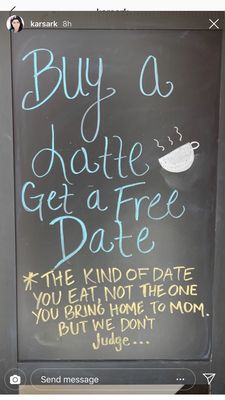 karsark 8h
Buy a
Latte
Get a Free
Date
*THE KIND OF DATE
YOU EAT, NOT THE ONE
YOU BRING HOME TO MOM.
BUT WE DON'T
Judge...
Send message